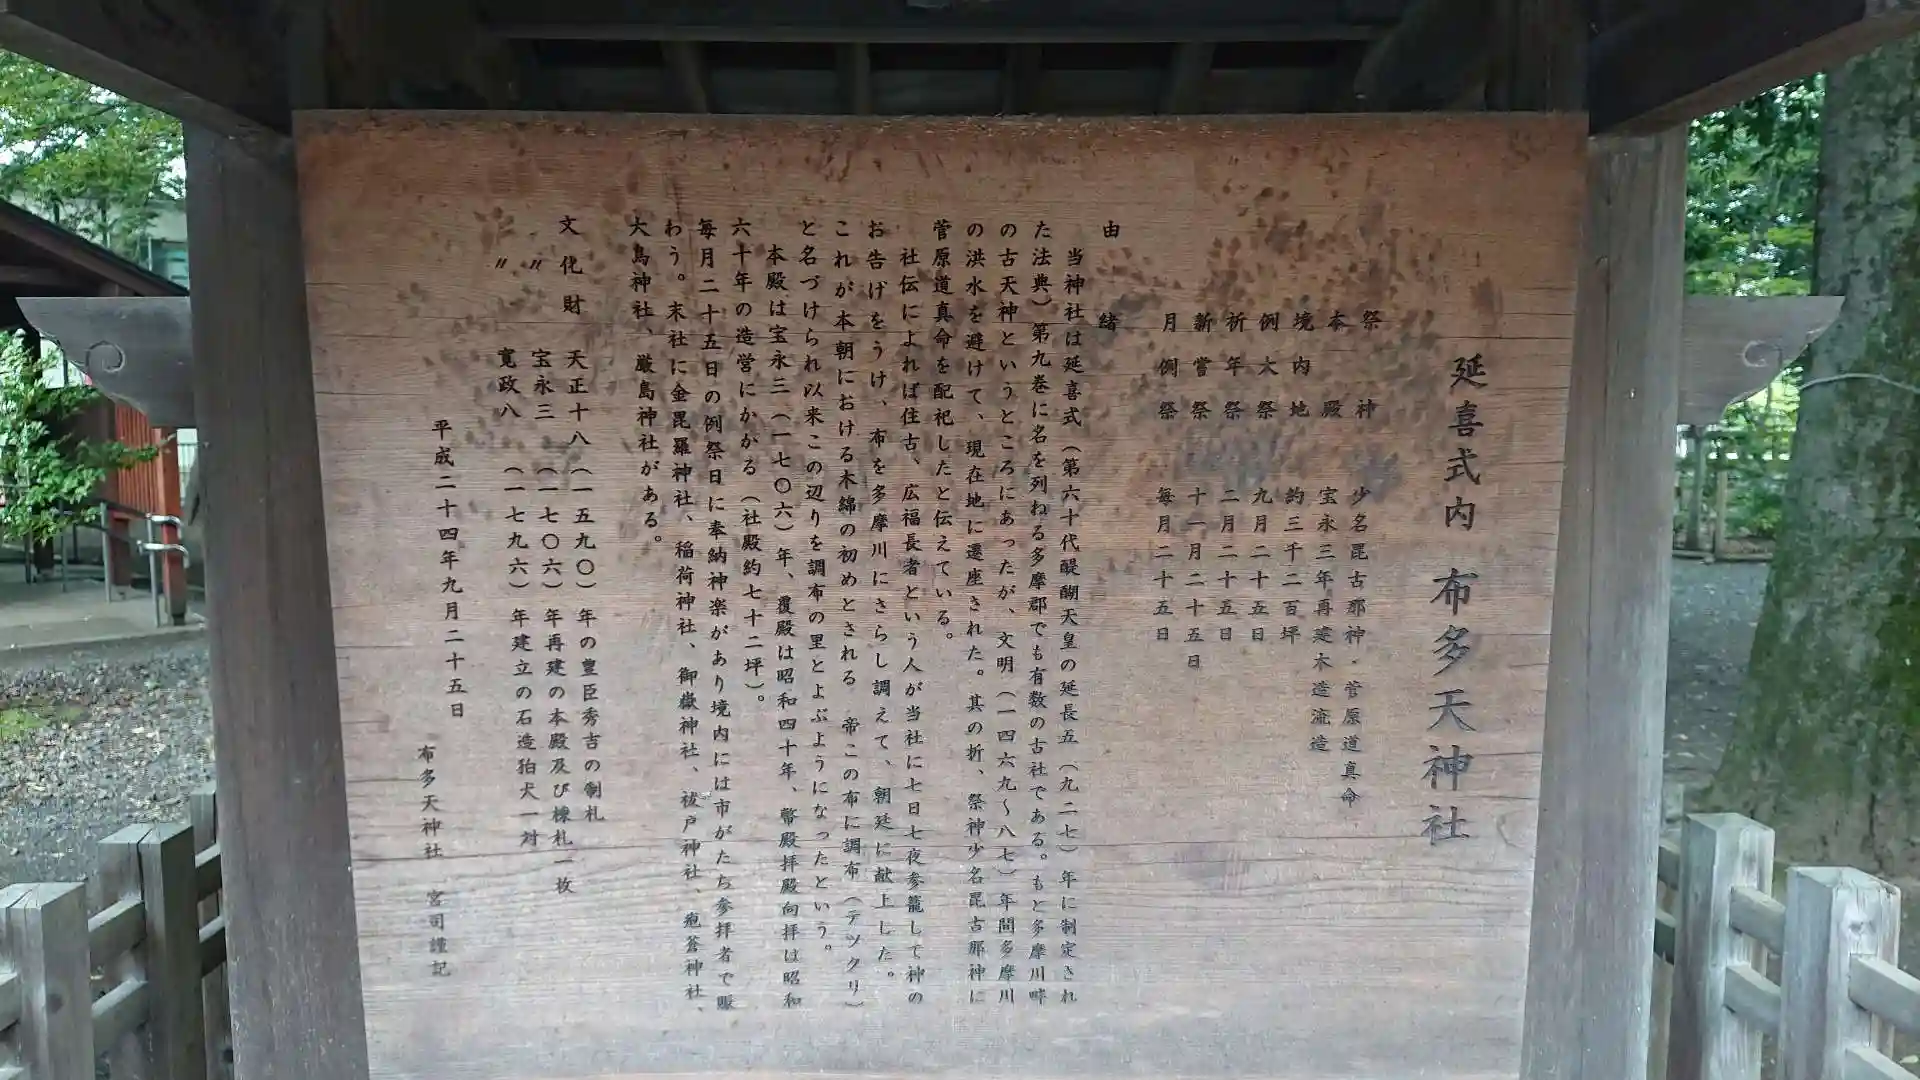 延喜式内 布多天神社
祭神 少名毘古那神・菅原道真命
本殿 宝永三年再建木造流造
境内地 約三千二百坪
例大祭 九月二十五日
祈年祭 二月二十五日
新嘗祭 十一月二十五日
月例祭 毎月二十五日
由緒
当神社は延喜式(第六十代醍醐天皇の延長五(九二七)年に制定され
た法典)第九巻に名を列ねる多摩郡でも有数の古社である。もと多摩川畔
の古天神というところにあったが、文明(一四六九〜八七)年間多摩川
の洪水を避けて、現在地に遷座された。其の折、祭神少名毘古那神に
菅原道真命を配祀したと伝えている。
社伝によれば往古、広福長者という人が当社に七日七夜参籠して神の
お告げをうけ、布を多摩川にさらし調えて、朝廷に献上した。
これが本朝における木綿の初めとされる 帝この布に調布(テヅクリ)
と名づけられ以来この辺りを調布の里とよぶようになったという。
本殿は宝永三(一七〇六)年、覆殿は昭和四十年、幣殿拝殿向拝は昭和
六十年の造営にかかる(社殿約七十二坪)。
毎月二十五日の例祭日に奉納神楽があり境内には市がたち参拝者で賑
わう。末社に金毘羅神社、稲荷神社、御嶽神社、祓戸神社、疱瘡神社、
大鳥神社、厳島神社がある。
文化財 天正十八(一五九〇)年の豊臣秀吉の制札
〃 宝永三(一七〇六)年再建の本殿及び棟札一枚
〃 寛政八(一七九六)年建立の石造狛犬一対
平成二十四年九月二十五日
布多天神社 宮司謹記